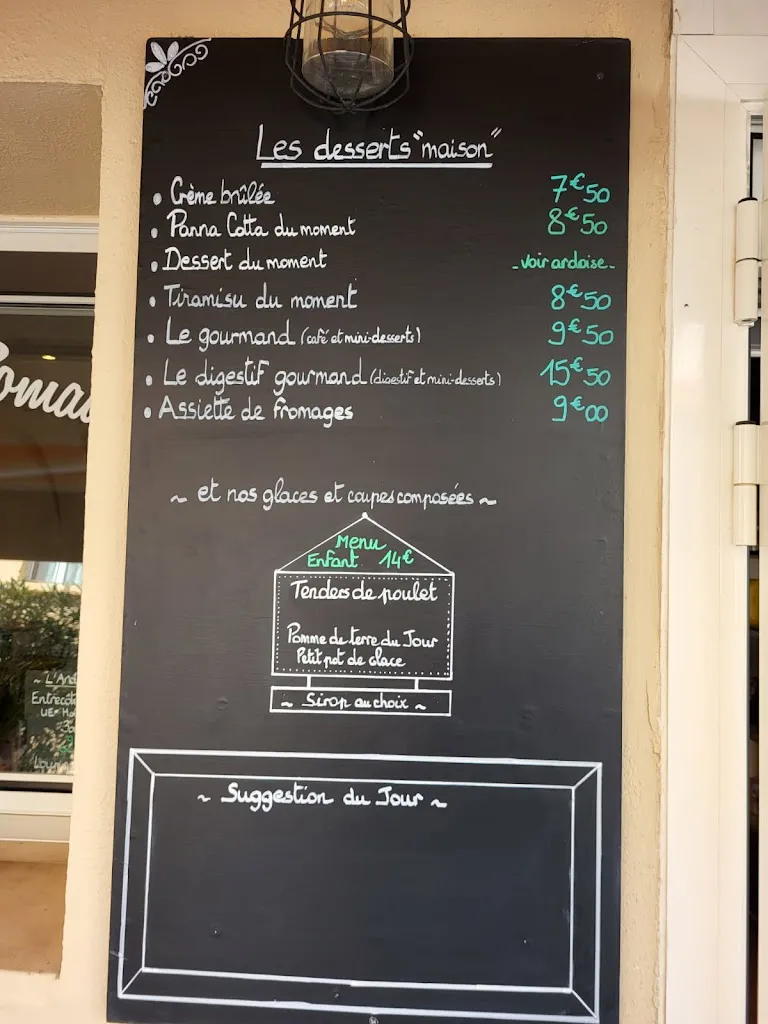 Les desserts "maison"
• Crème brûlée 7€50
• Panna Cotta du moment 8€50
• Dessert du moment -voir ardoise-
• Tiramisu du moment 8€50
• Le gourmand (café et mini-desserts) 9€50
• Le digestif gourmand (digestif et mini-desserts) 15€50
• Assiette de fromages 9€00
~ et nos glaces et coupes composées ~
Menu
Enfant 14€
Tenders de poulet
Pomme de terre du Jour
Petit pot de glace
~ Sirop au choix ~
~ Suggestion du Jour ~
~ L'And
Entrecôt